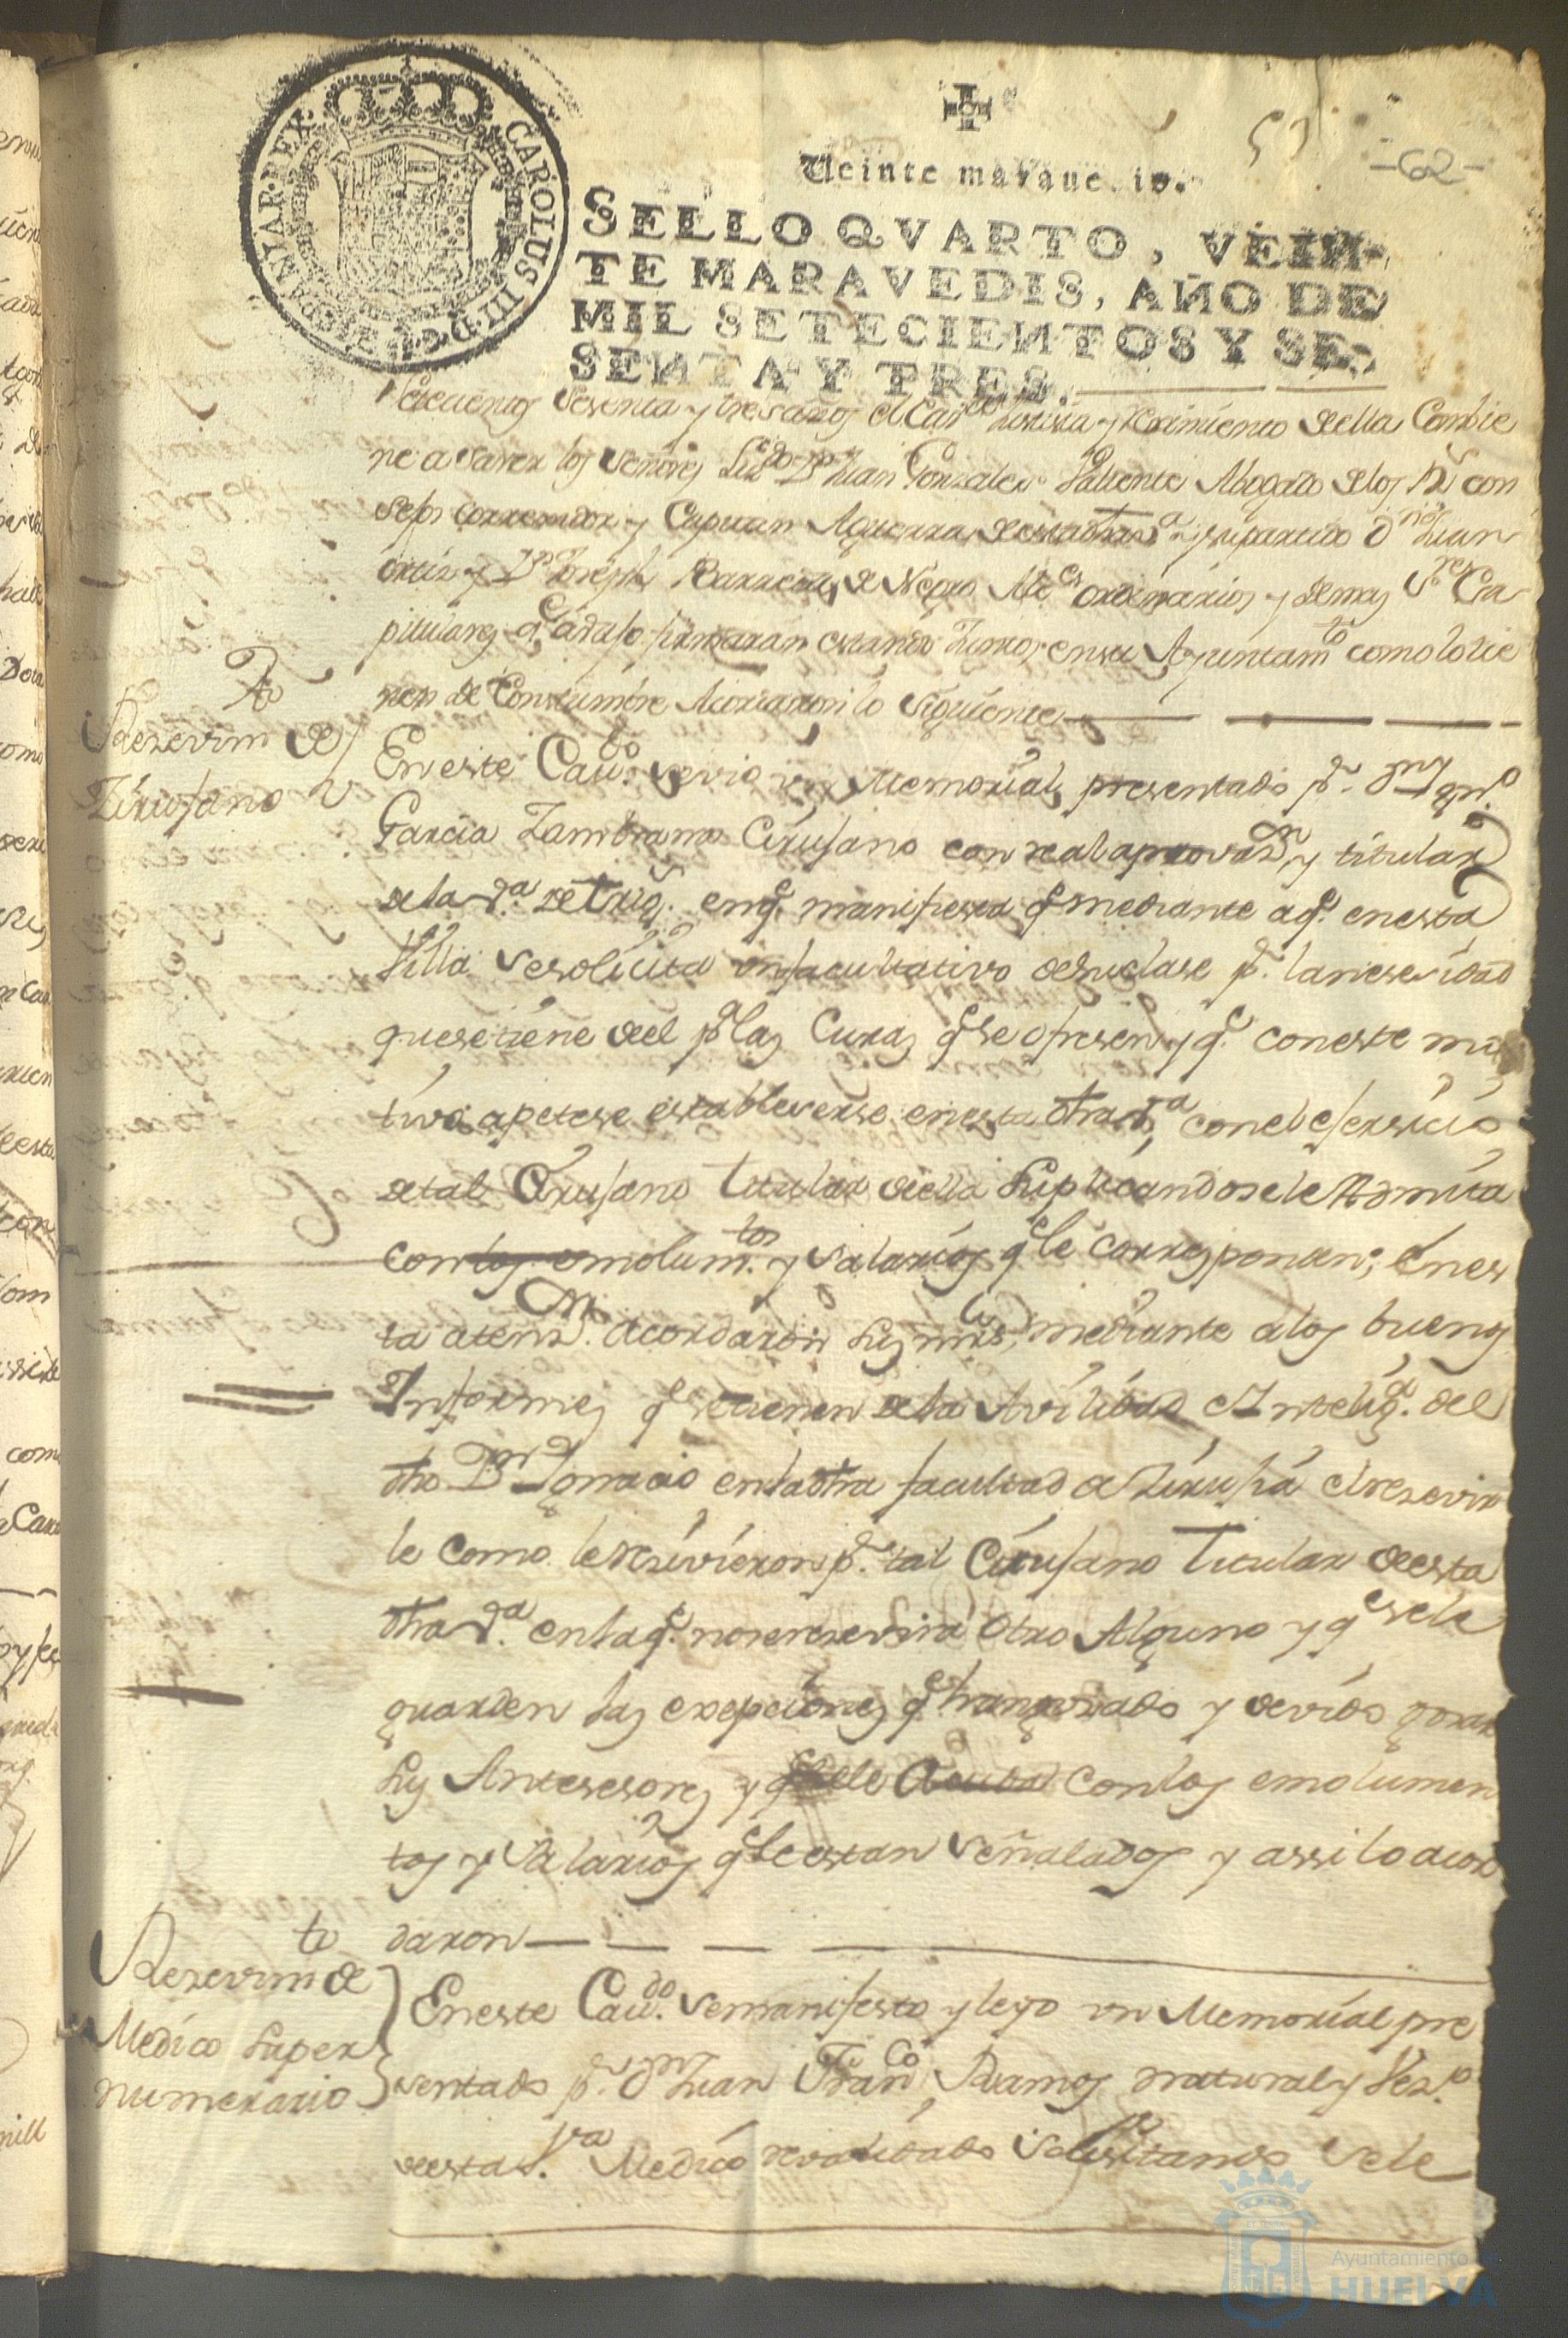 CAROLUS III D. G. HISPANIAR. REX.
Veinte maravedis.
57
-62-
SELLO QVARTO, VEIN-
TE MARAVEDIS, AÑO DE
MIL SETECIENTOS Y SE-
SENTA Y TRES.
setecientos sesenta y tres años el Cav.do Justicia y reximiento de ella Combie
ne a saver los señores Lic.do D.n Juan Gonzales Valiente Abogado de los R.s con
sejos correxidor y Capitan Aguerra de esta dha V.a y su partido D.n Juan
ortiz y D.n Joseph Barreda de Negro Alc.es ordinarios y demas S.res Ca
pitulares q.e avajo firmaran estando Juntos en su Ayuntam.to como lo tie
nen de Constumbre Acordaron lo siguiente
Rezevim.to de
Zirujano
En este Cav.do se vio un Memorial presentado p.r D.n Ign.o
Garcia Zambrano Cirujano con real aprovaz.n y titular
de la V.a de Trig.s en q.e manifiesta q.e mediante a q.e en esta
Villa se solicita un facultativo de su clase p.r la nesesidad
que se tiene de el p.a las Curas q.e se ofresen y q.e con este mo
tivo apetese estableserse en esta dha V.a con el efersicio
de tal Cirujano titular de ella suplicando se le Admita
con los emolum.tos y salarios q.e le corresponden; En es
ta atenz.n acordaron sus mrds, mediante a los buenos
Informes q.e se tienen de la Avilidad e Intelig.a del
dho D.n Ignacio en la dha facultad de Zirujia el rezevir
le como le rezivieron p.r tal Cirujano Titular de esta
dha V.a en la q.e no se rezevira otro Alguno y q.e se le
guarden las exepciones q.e han gozado y devido gozar
sus Antesesores y q.e se le Acuda con los emolumen
tos y salarios q.e le estan señalados y assi lo acor
daron
Rezevim.to de
Medico super
numerario
En este Cav.do se manifesto y leyo un Memorial pre
sentado p.r D.n Juan Fran.co Ramos natural y Vez.o
de esta V.a Medico revalidado solisitando se le
Ayuntamiento de
HUELVA